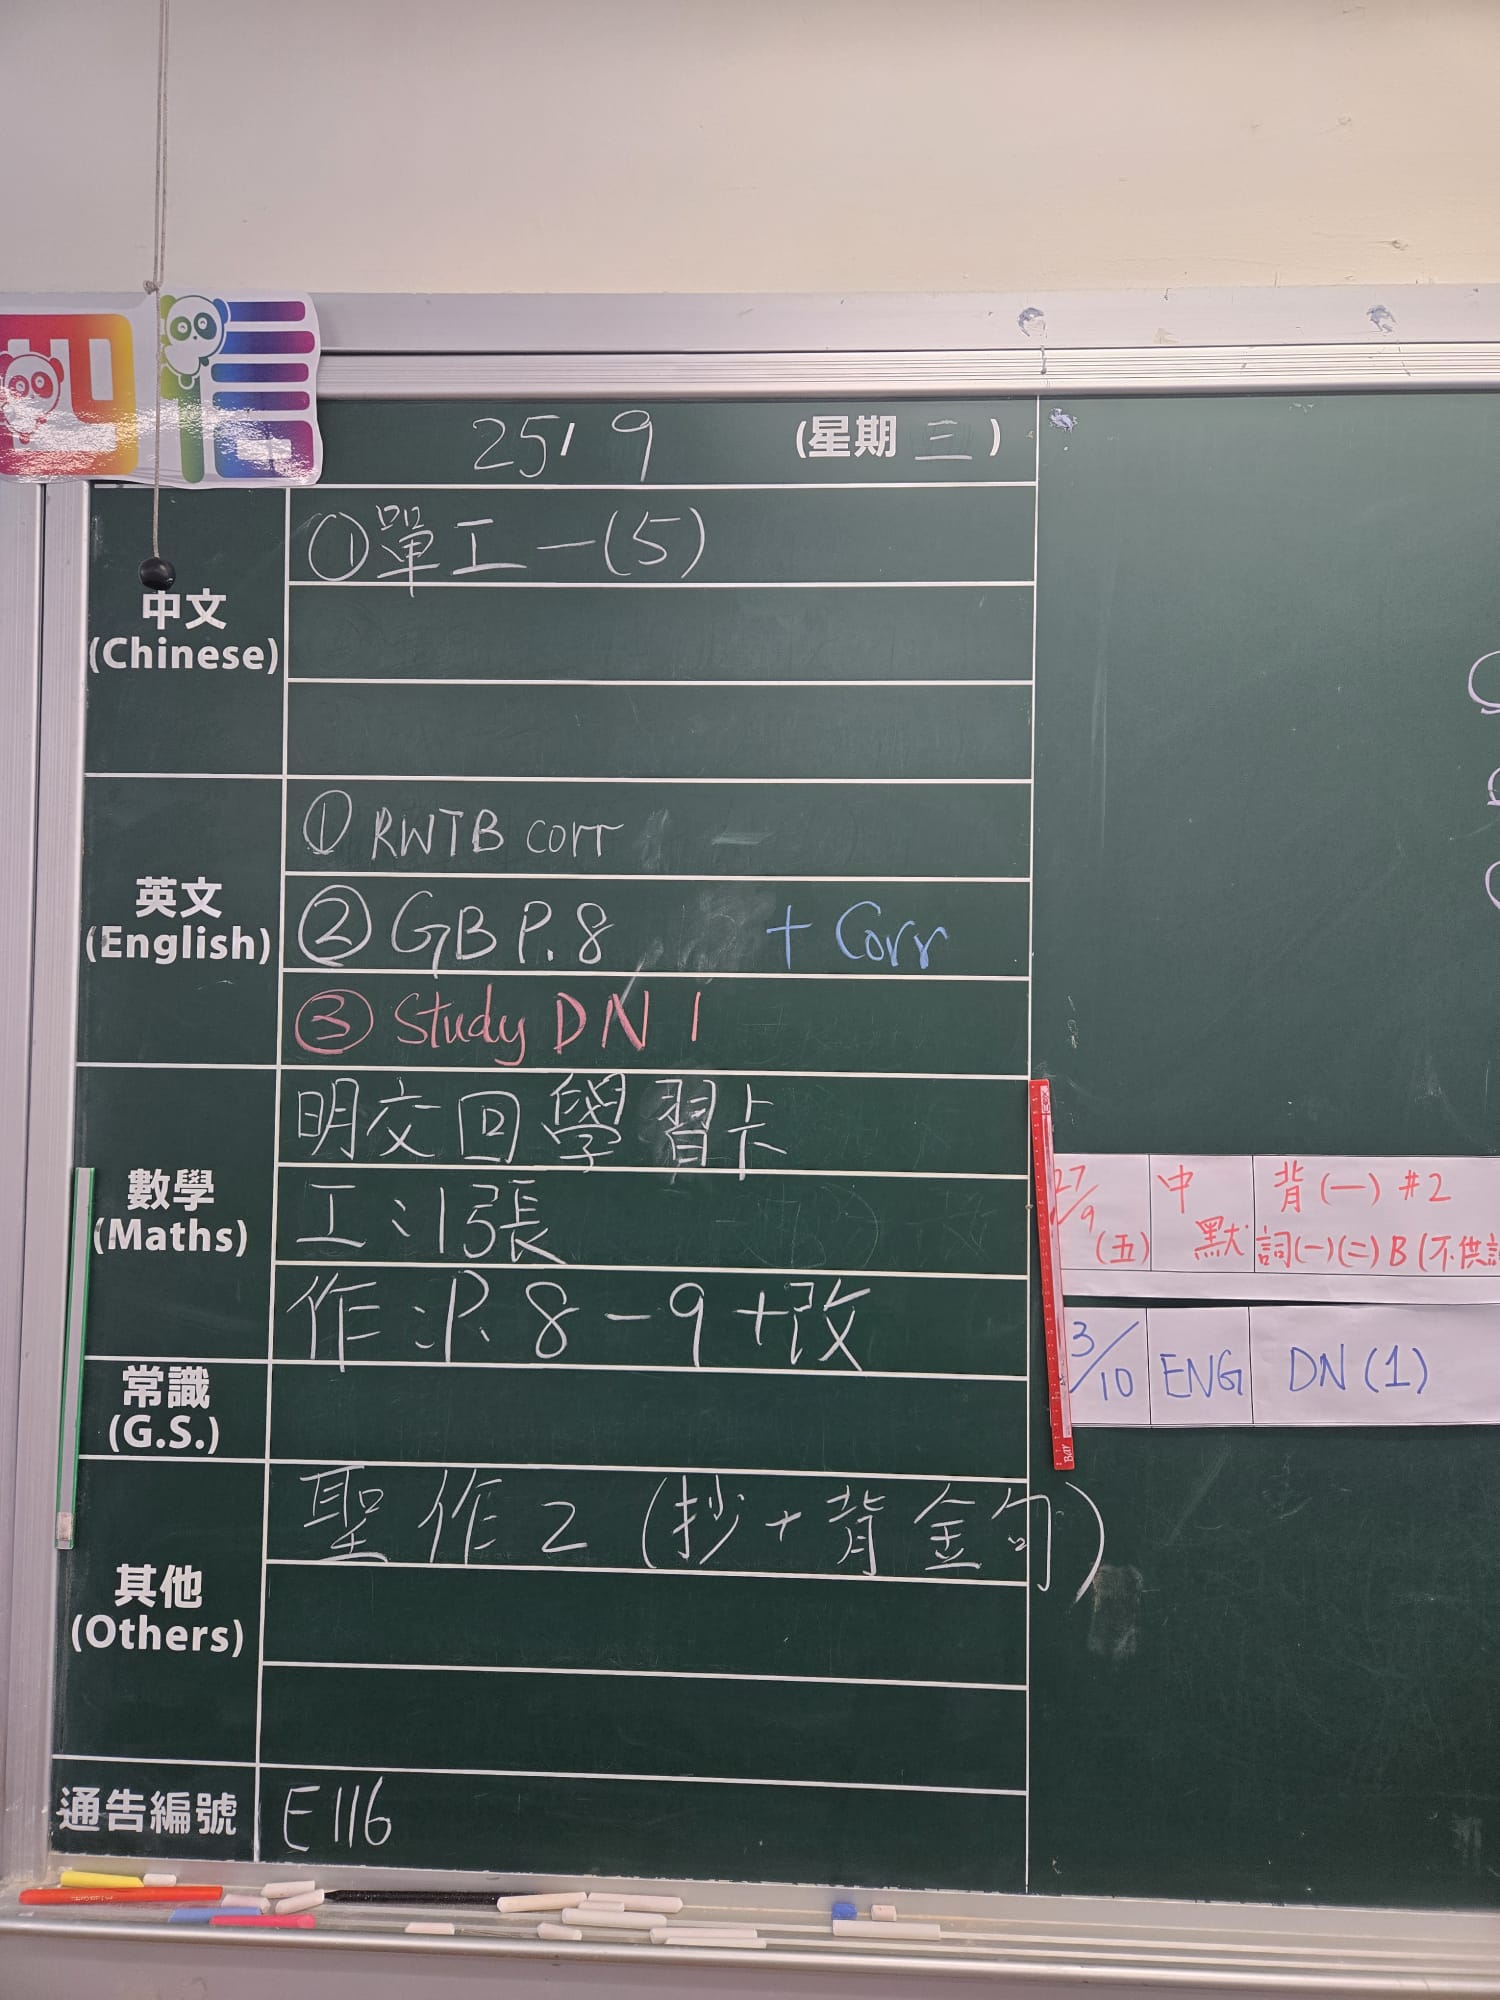 四信
25/9 (星期三)
中文
(Chinese)
①單工一(5)
英文
(English)
①RWTB corr
②GB P.8 + Corr
③Study DN 1
數學
(Maths)
明交回學習卡
工:1張
作:P.8-9+改
常識
(G.S.)
其他
(Others)
聖作2(抄+背金句)
通告編號
E116
27/9 (五) 中默 背(一)#2
詞(一)(二)B(不供
3/10 ENG DN(1)
Bar